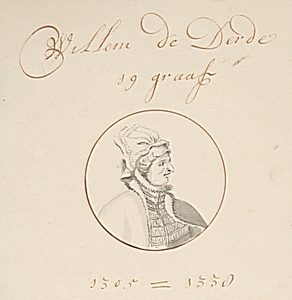 Willem de Derde
19 graaf
1305 = 1338